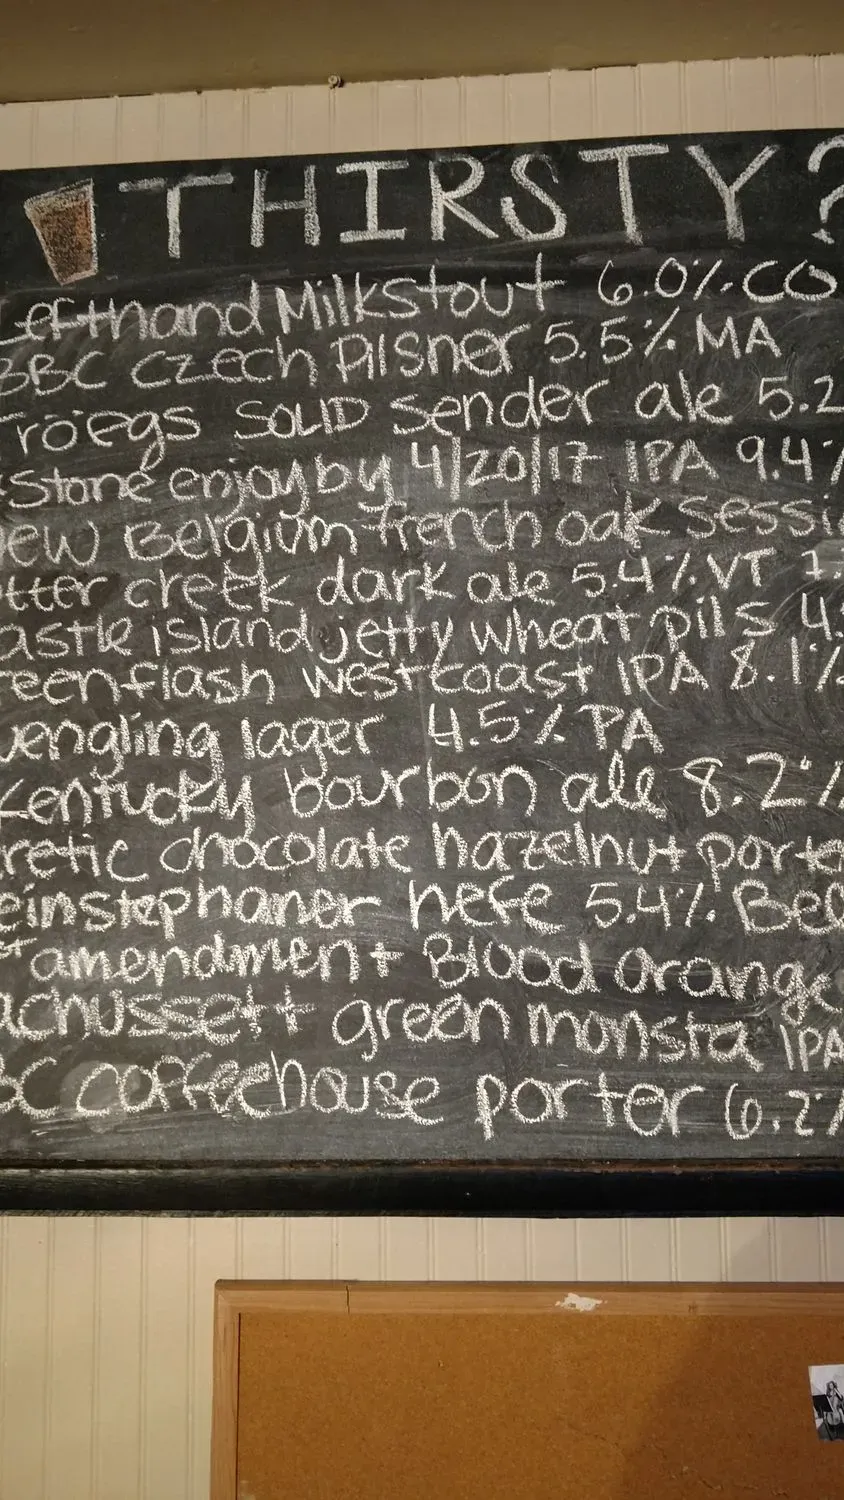 THIRSTY?
Lefthand Milkstout 6.0% CO
BBC Czech Pilsner 5.5% MA
Tröegs SOLID sender ale 5.2
Stone enjoy by 4/20/17 IPA 9.4%
New Belgium french oak sessi
tter creek dark ale 5.4% VT
astle island jetty wheat pils 4.
eenflash westcoast IPA 8.1%
uengling lager 4.5% PA
Kentucky bourbon ale 8.2%
retic chocolate hazelnut porte
einstephaner hefe 5.4% Bel
st amendment Blood orange
achussett green monsta IPA
BC coffeehouse porter 6.2%